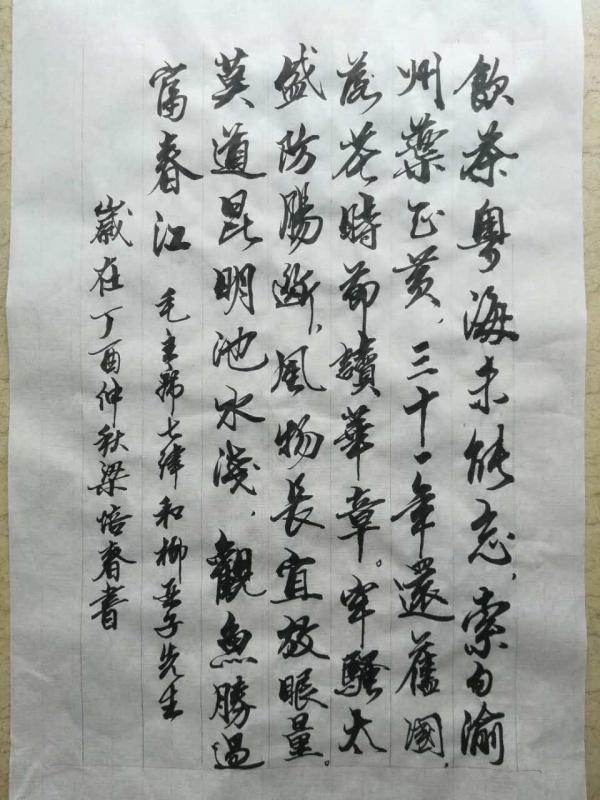 飲茶粤海未能忘，索句渝
州葉正黄，三十一年還舊國，
落花時節讀華章。牢騷太
盛防腸斷，風物長宜放眼量。
莫道昆明池水淺，觀魚勝過
富春江 毛主席七律和柳亚子先生
歲在丁酉仲秋梁培春書